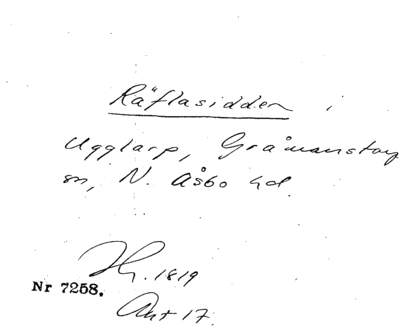 Räflasidden i
Ugglarp, Gråmanstorp
sn, N. Åsbo hd.
1819
Nr 7258.
Akt 17.